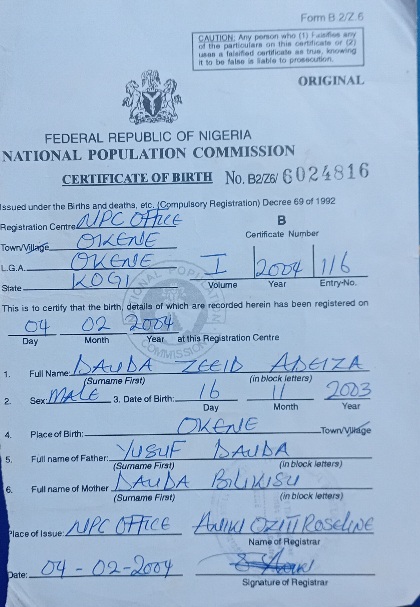 Form B.2/Z.6
CAUTION: Any person who (1) Falsifies any
of the particulars on this certificate or (2)
uses a falsified certificate as true, knowing
it to be false is liable to prosecution.
ORIGINAL
FEDERAL REPUBLIC OF NIGERIA
NATIONAL POPULATION COMMISSION
CERTIFICATE OF BIRTH No. B2/Z6/ 6024816
Issued under the Births and deaths, etc. (Compulsory Registration) Decree 69 of 1992
Registration Centre NPC OFFICE B
Town/Village OKENE Certificate Number
L.G.A. OKENE I 2004 116
State KOGI Volume Year Entry-No.
This is to certify that the birth, details of which are recorded herein has been registered on
04 02 2004 at this Registration Centre
Day Month Year
1. Full Name: DAUDA ZEEID ADEIZA
(Surname First) (in block letters)
2. Sex: MALE 3. Date of Birth: 16 11 2003
Day Month Year
4. Place of Birth: OKENE Town/Village
5. Full name of Father: YUSUF DAUDA
(Surname First) (in block letters)
6. Full name of Mother DAUDA BILIKISU
(Surname First) (in block letters)
Place of Issue: NPC OFFICE Roseline
Name of Registrar
Date: 04-02-2004
Signature of Registrar